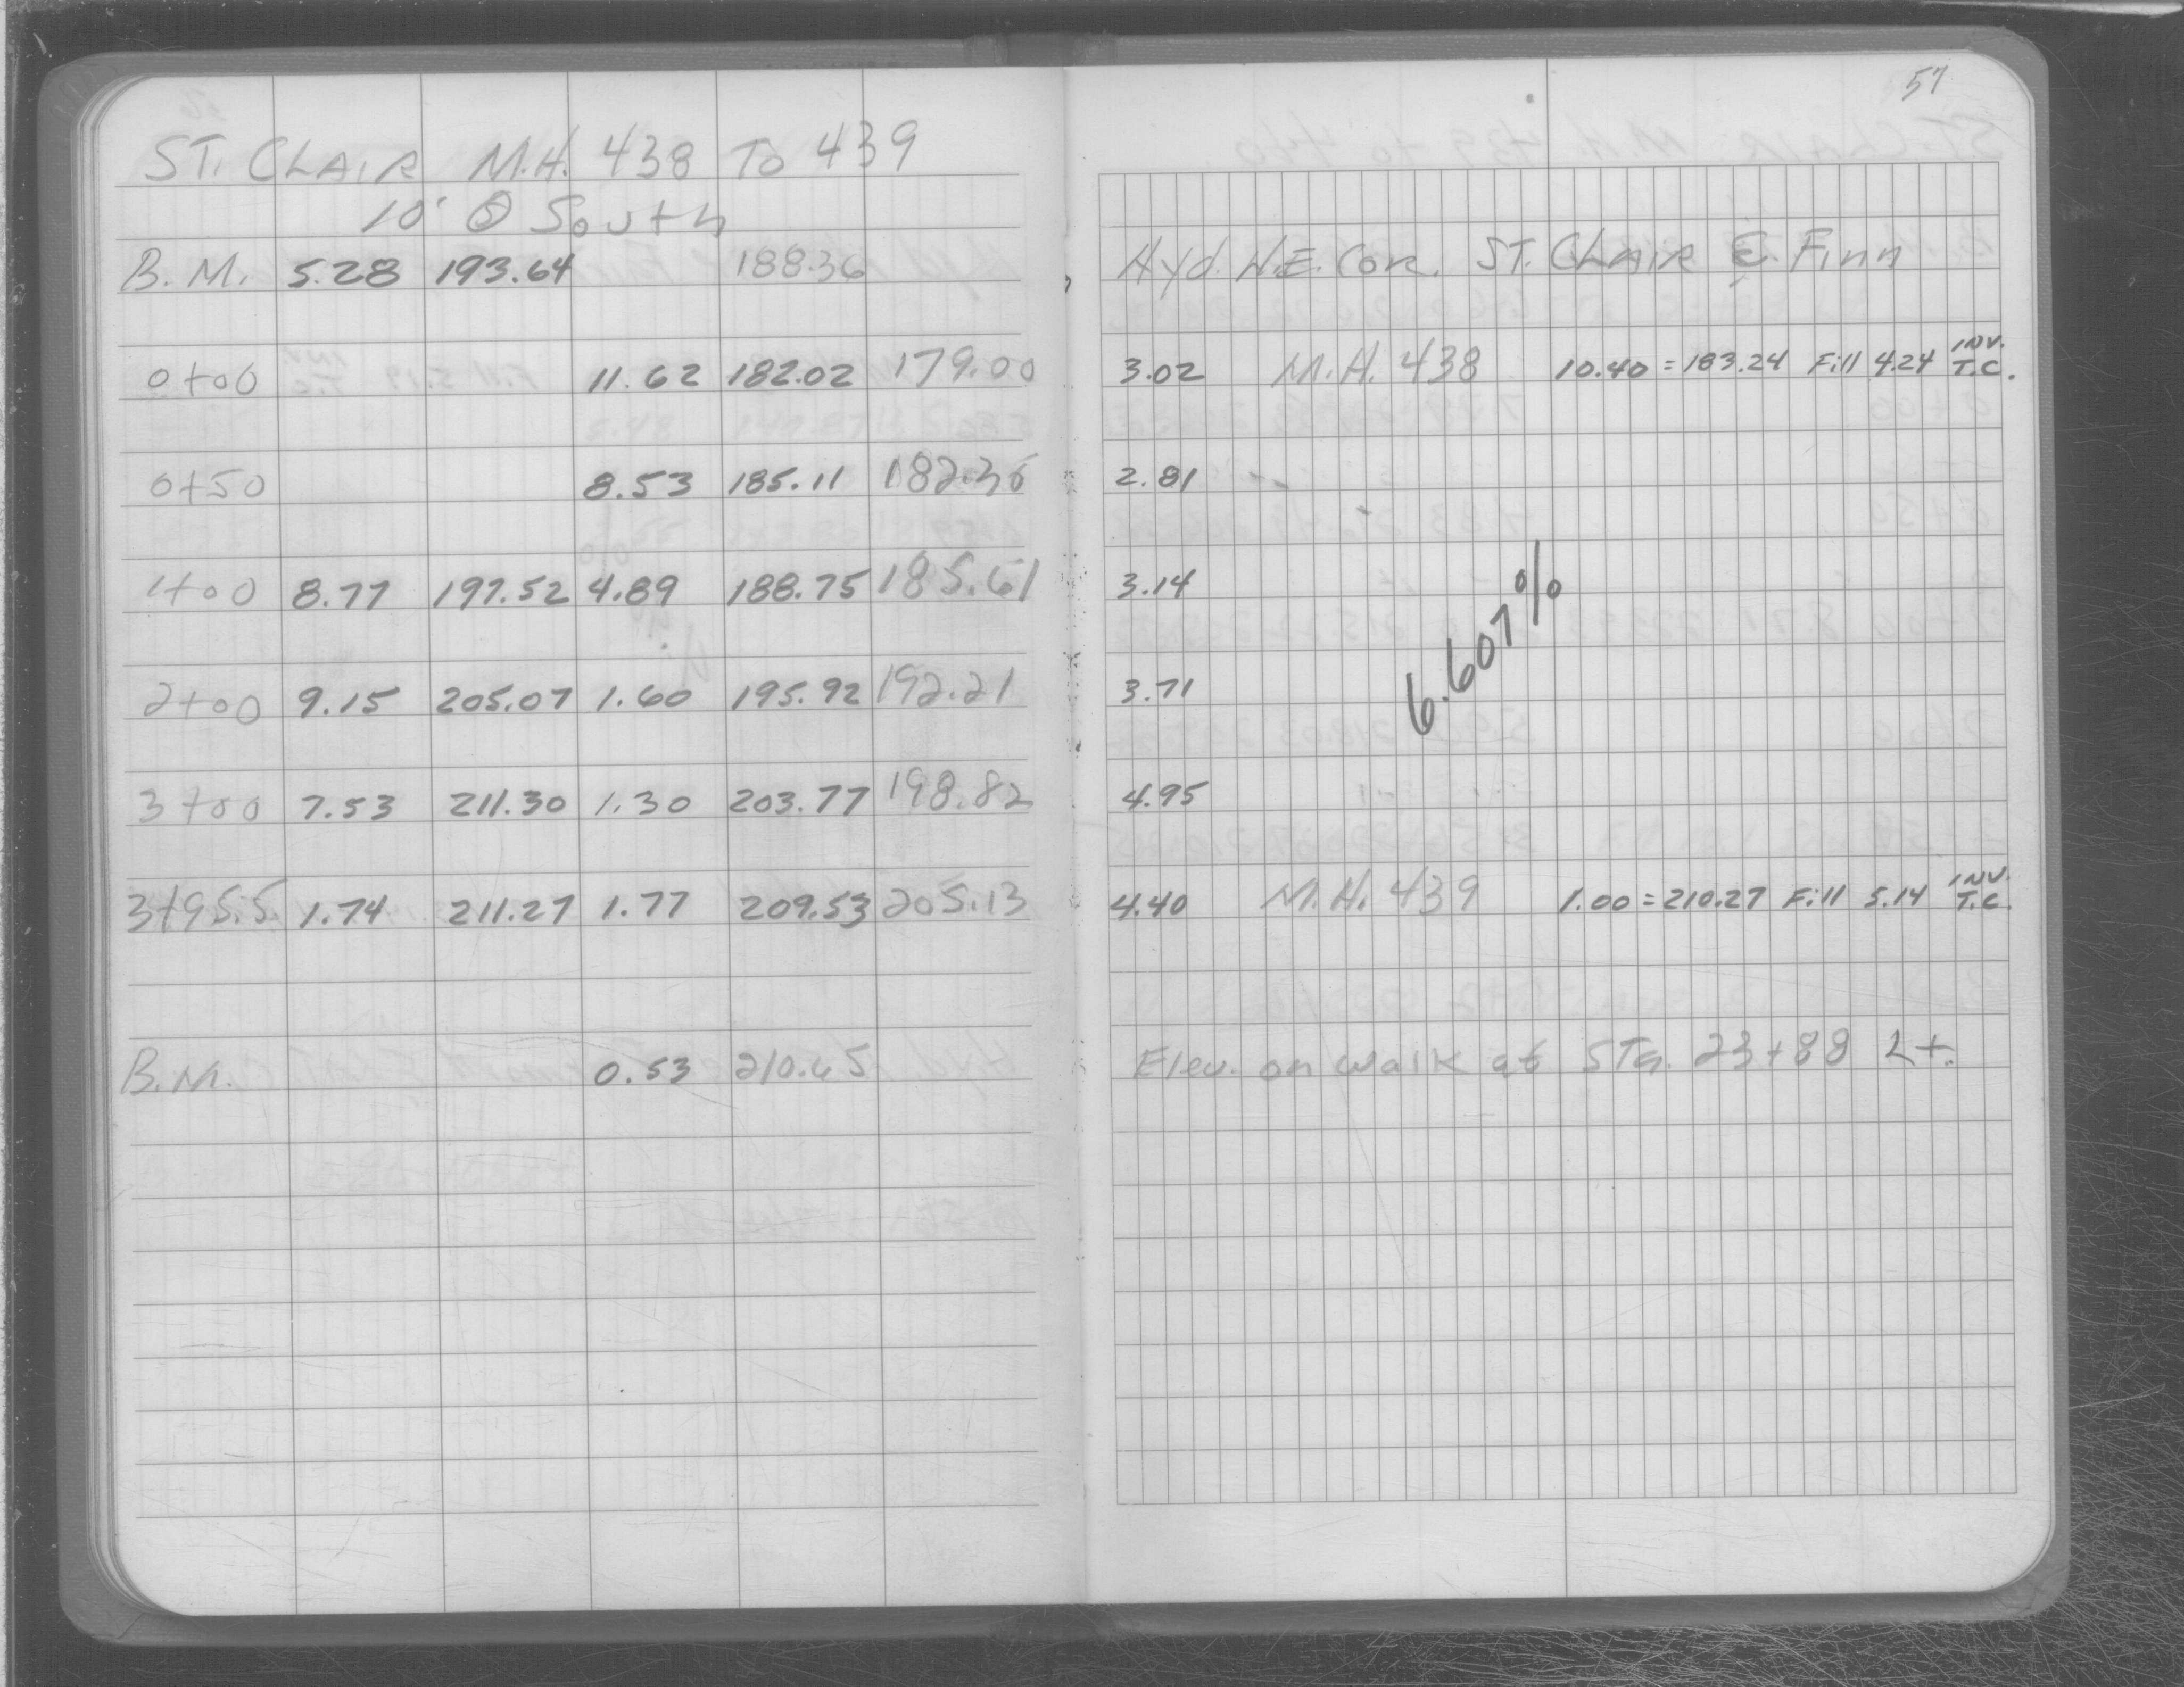 57
ST. CLAIR M.H. 438 TO 439
10' Ⓢ South
B.M. 5.28 193.64 188.36 Hyd. N.E. Cor. ST. CLAIR & Finn
0+00 11.62 182.02 179.00 3.02 M.H. 438 10.40 = 183.24 Fill 4.24 INV. T.C.
0+50 8.53 185.11 182.30 2.81
1+00 8.77 197.52 4.89 188.75 185.61 3.14
6.607%
2+00 9.15 205.07 1.60 195.92 192.21 3.71
3+00 7.53 211.30 1.30 203.77 198.82 4.95
3+95.5 1.74 211.27 1.77 209.53 205.13 4.40 M.H. 439 1.00 = 210.27 Fill 5.14 INV. T.C.
B.M. 0.53 210.65 Elev. on walk at STa. 23+88 Lt.